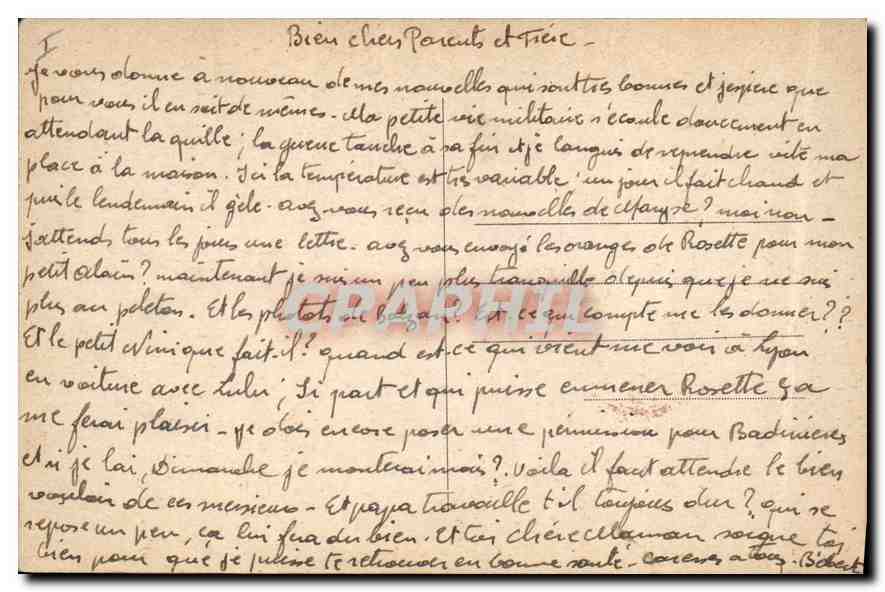 I
Bien chers Parents et Frère -
Je vous donne à nouveau de mes nouvelles qui sont très bonnes et j'espère que
pour vous il en soit de mêmes. Ma petite vie militaire s'écoule doucement en
attendant la quille ; la guerre tanche à sa fin et je languis de reprendre vite ma
place à la maison. Ici la température est très variable ; un jour il fait chaud et
puis le lendemain il gèle - avez vous reçu des nouvelles de Maryse ? moi non -
J'attends tous les jours une lettre. avez vous envoyé les oranges de Rosette pour mon
petit Alain ? maintenant je suis un peu plus tranquille depuis que je ne suis
plus au peloton. Et les photots de ? Est ce qui compte me les donner ??
Et le petit Nini que fait-il ? quand est-ce qui vient me voir à Lyon
en voiture avec Lulu ; Si part et qui puisse emmener Rosette ça
me ferai plaisir - Je dois encore poser une permission pour Badinières
et si je lai, Dimanche je monterai mais ? Voila il faut attendre le bien
vouloir de ces messieurs - Et papa travaille t il toujours dur ? qui se
repose un peu, ça lui fera du bien. Et toi chère Maman soigne toi
bien pour que je puisse te retrouver en bonne santé - caresses a tous - Bébert
CPAPHIL